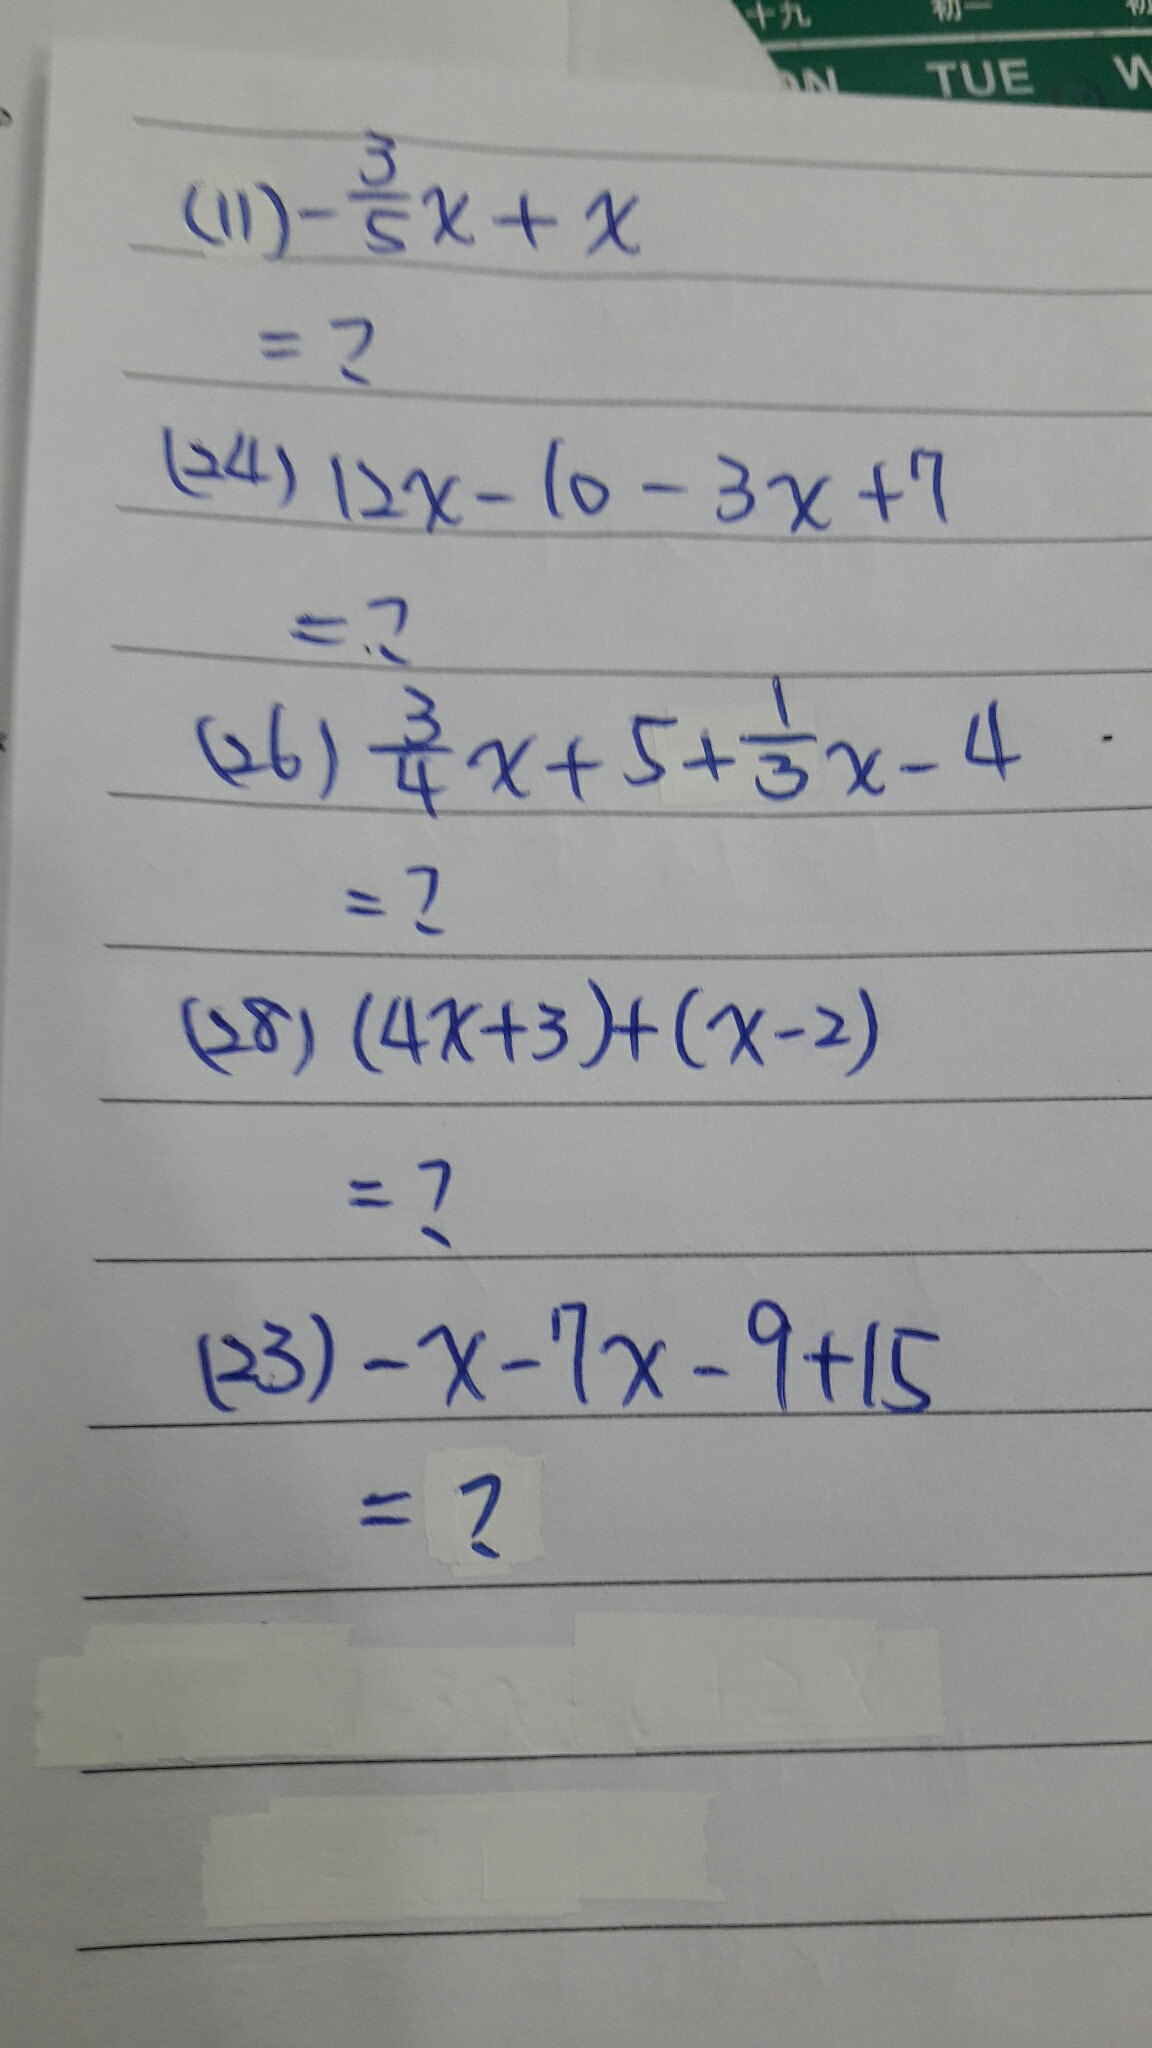 十九 初一
TUE
(11) -3/5x + x
= ?
(24) 12x - 10 - 3x + 7
= ?
(26) 3/4x + 5 + 1/3x - 4
= ?
(28) (4x+3)+(x-2)
= ?
(23) -x-7x-9+15
= ?